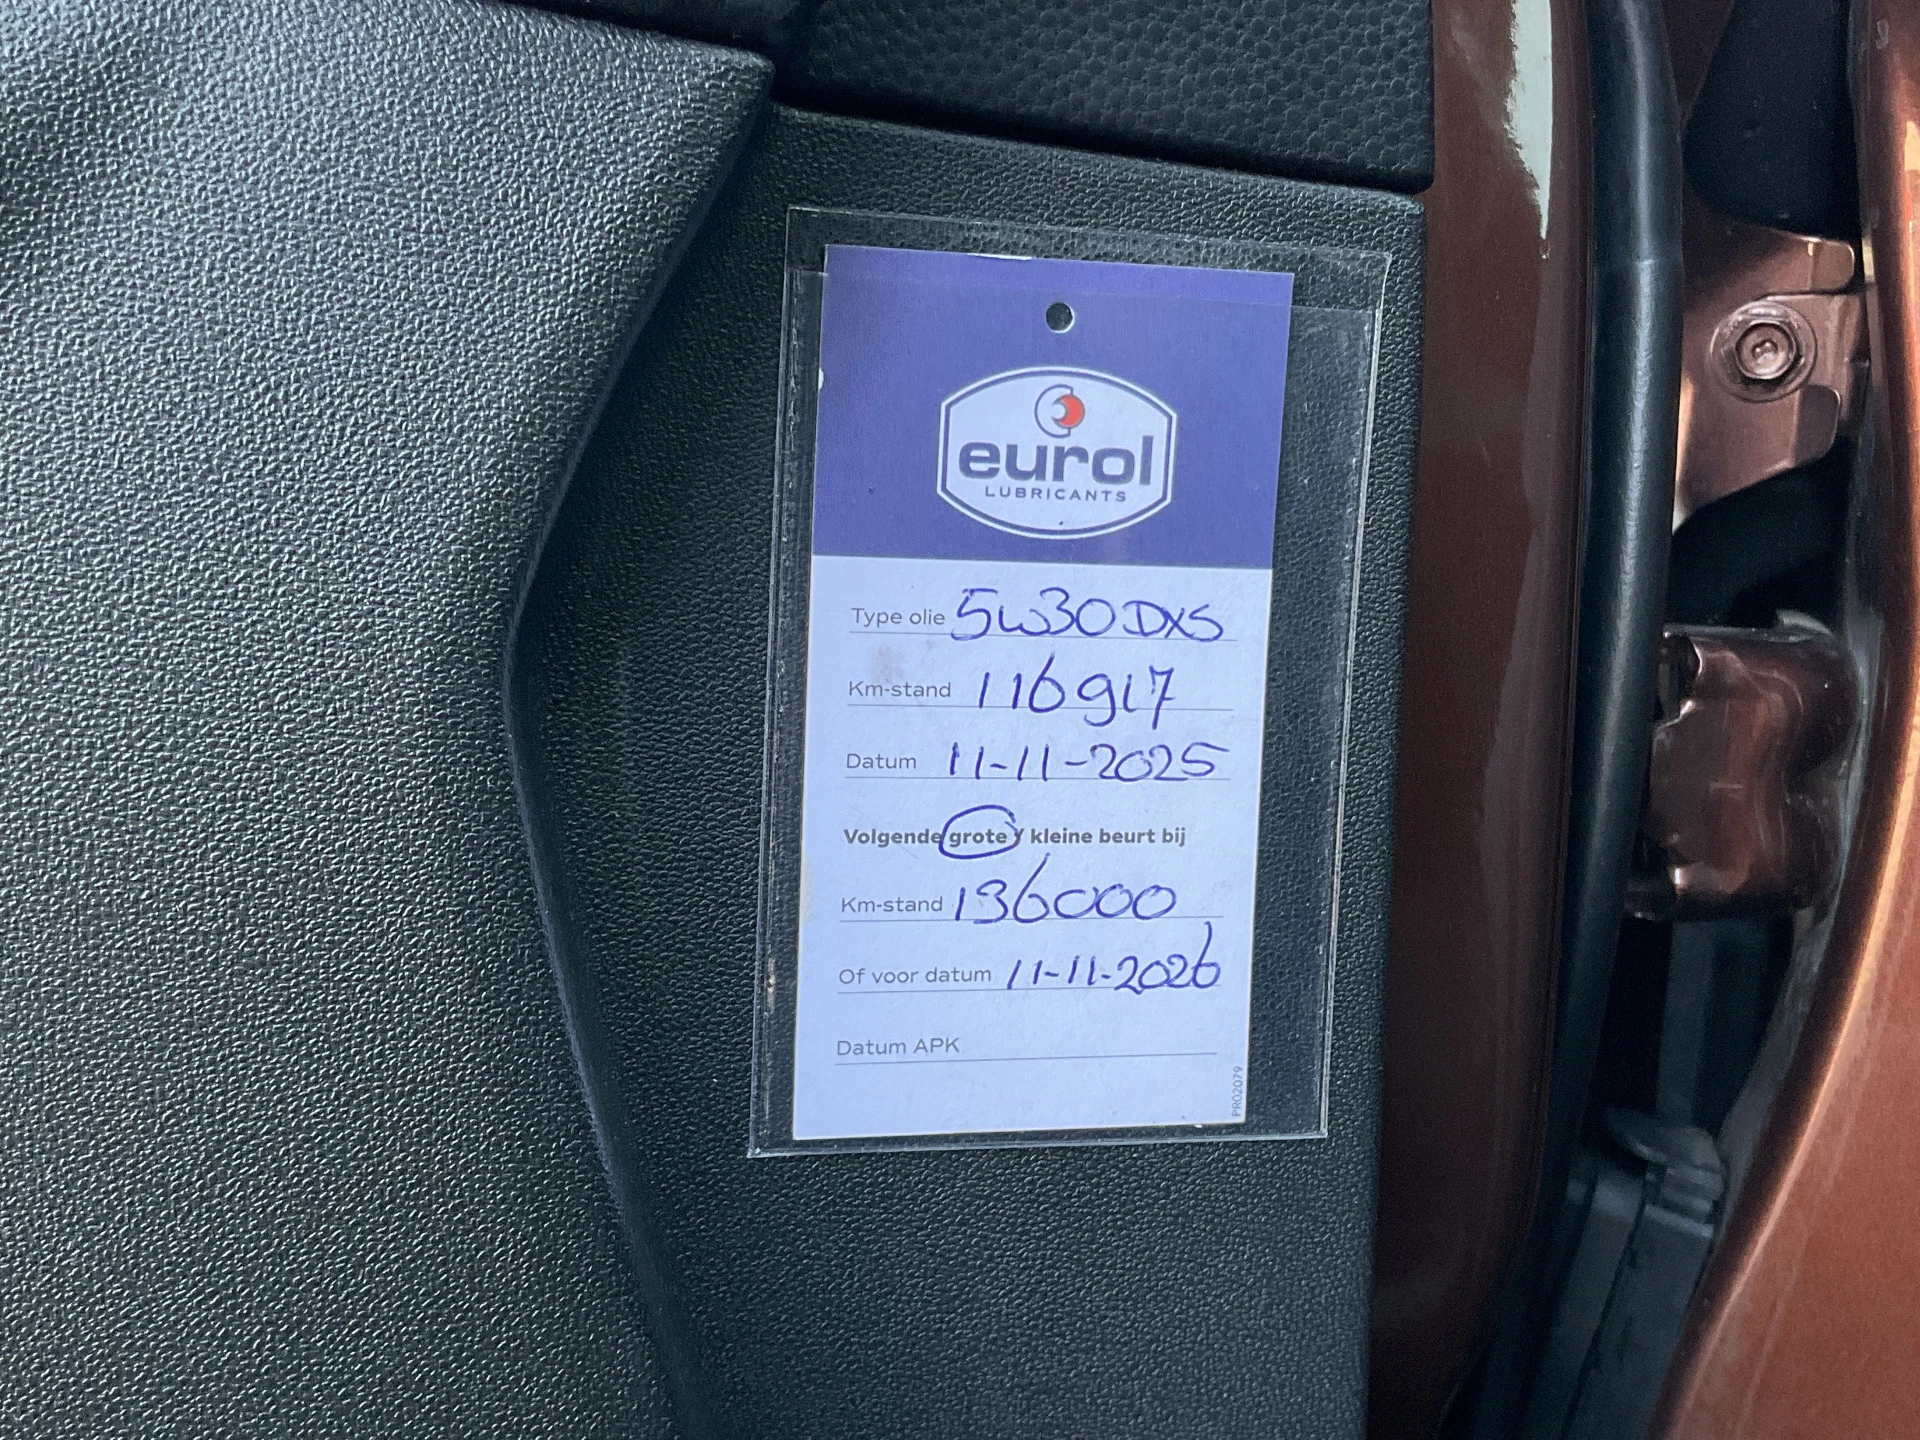 eurol
LUBRICANTS
Type olie 5W30 DXS
Km-stand 116917
Datum 11-11-2025
Volgende grote / kleine beurt bij
Km-stand 136000
Of voor datum 11-11-2026
Datum APK
PR02079